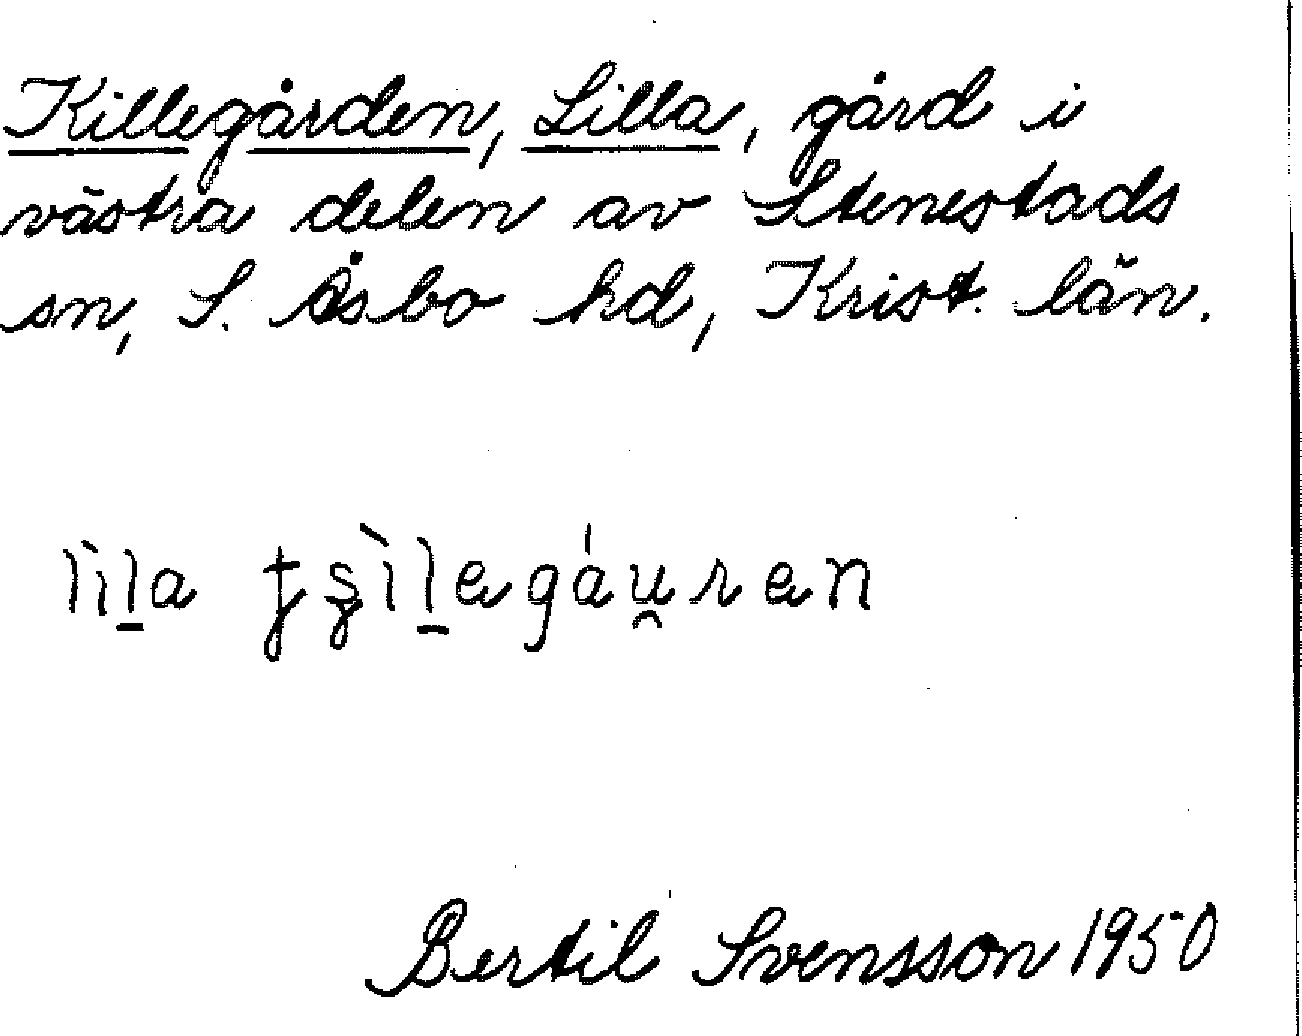 Killegården, Lilla, gård i
västra delen av Stenestads
sn, S. Åsbo hd, Krist. län.
lìl̠a ţșìl̠egáu̯ren
Bertil Svensson 1950